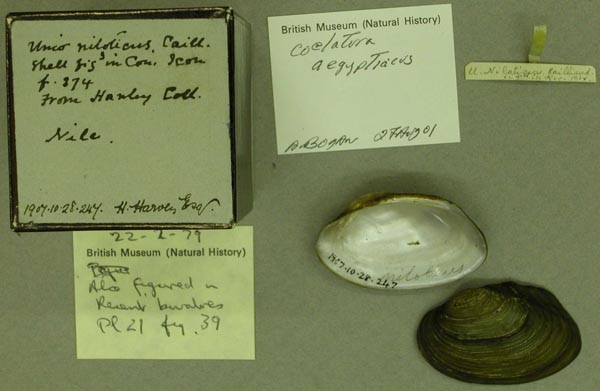 Unio niloticus, Caill.
Shell fig^d in Con. Icon
f. 374
From Hanley Coll.
Nile.
1907.10.28.247. H. Harvey Esq^r.
British Museum (Natural History)
Coelatura
aegyptiacus
A. BOGAN 27 Aug 01
U. Niloticus. Cailliaud.
22-2-79
British Museum (Natural History)
Also figured in
Recent bivalves
Pl 21 fig. 39
1907.10.28.247
niloticus